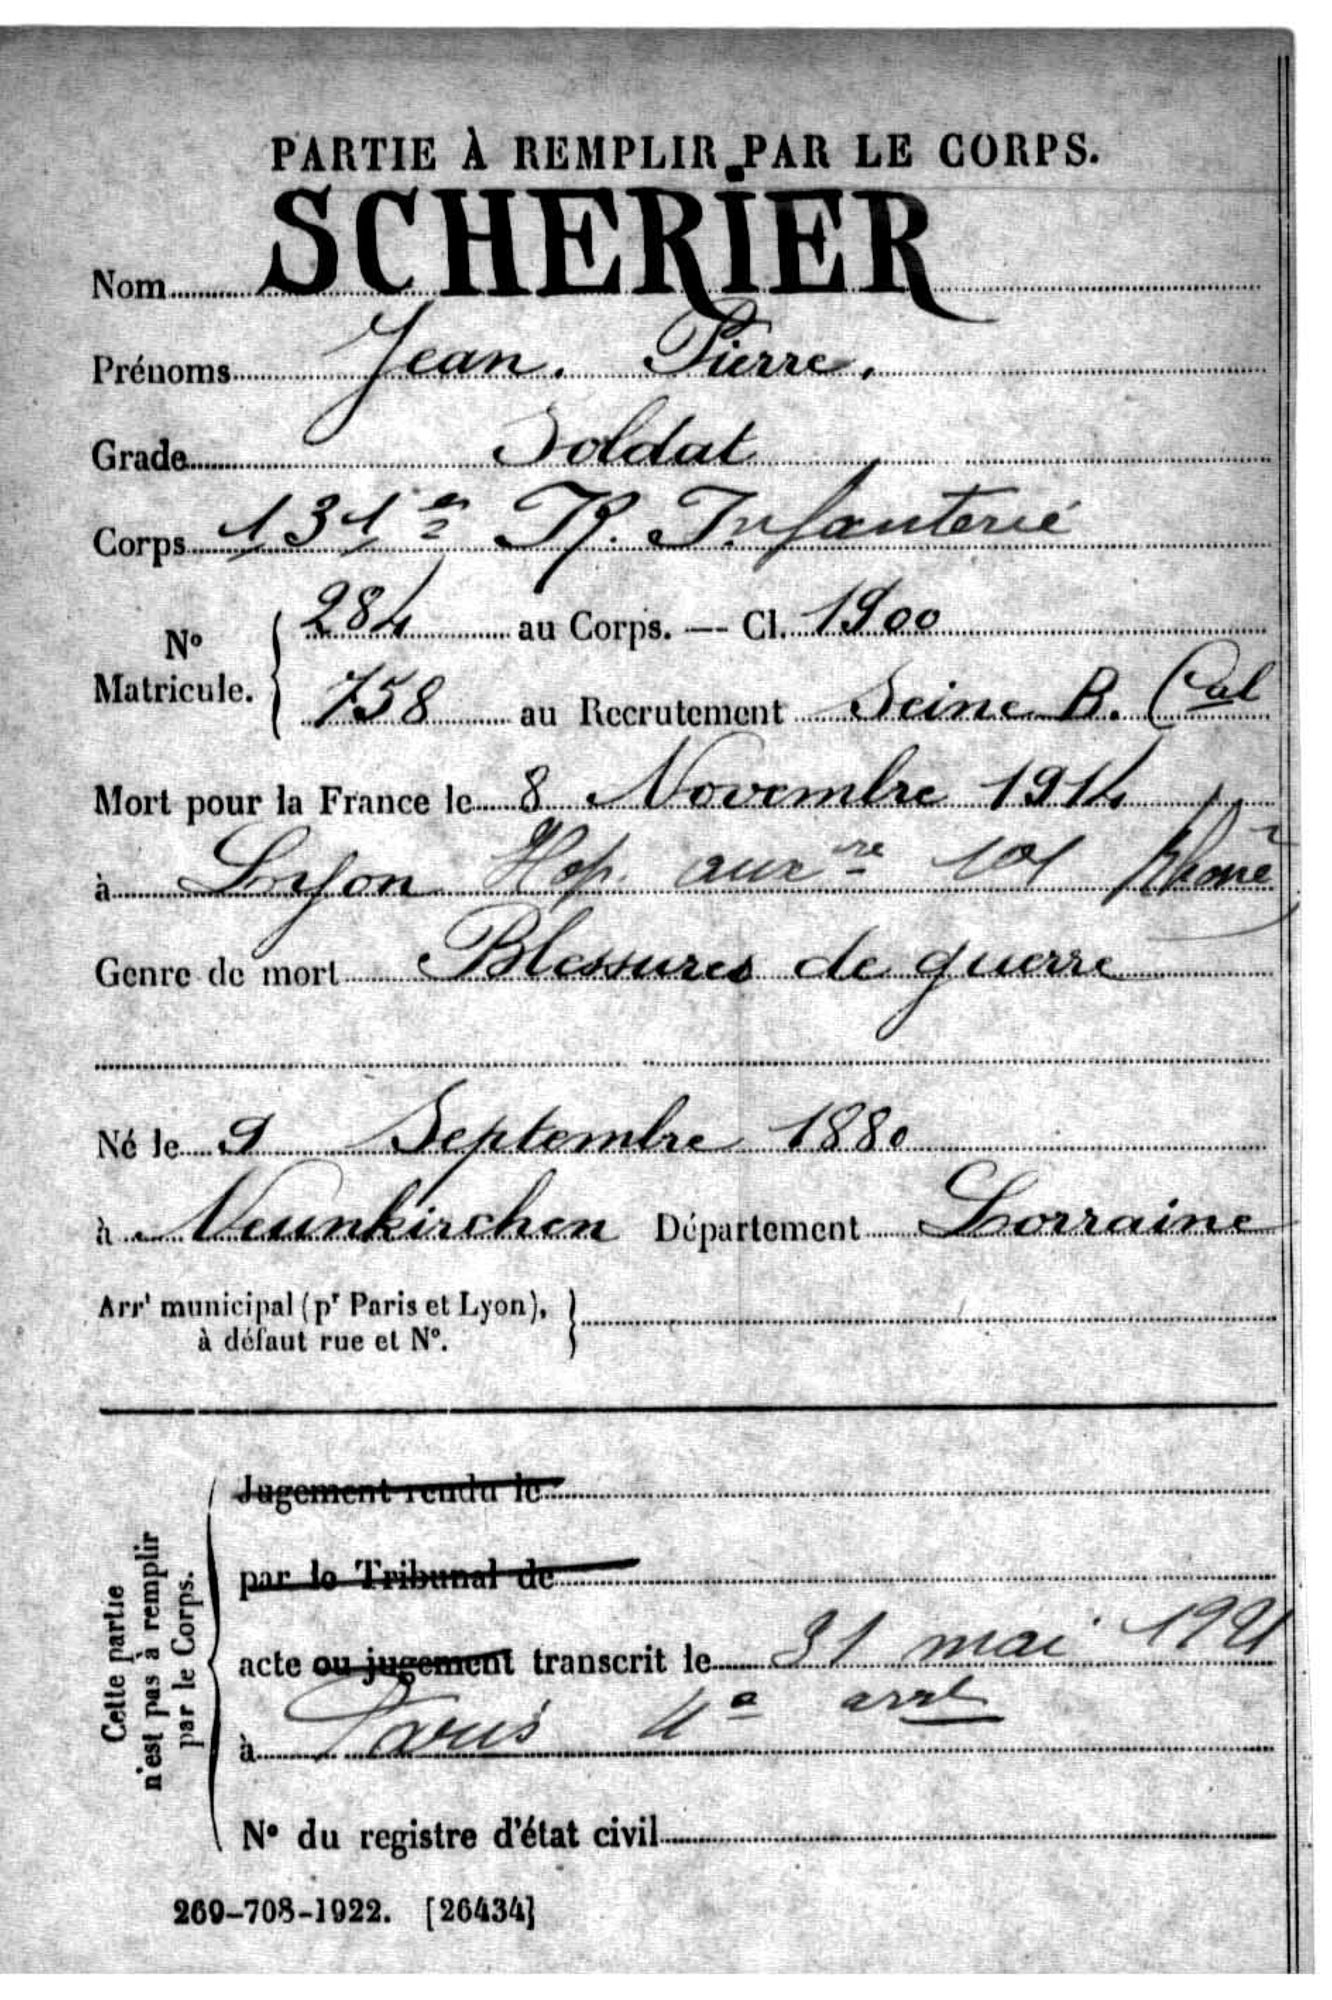 PARTIE À REMPLIR PAR LE CORPS.
Nom SCHERIER
Prénoms Jean. Pierre.
Grade Soldat
Corps 131e R. Infanterie
N° Matricule. { 284 au Corps. — Cl. 1900
758 au Recrutement Seine B. Cal
Mort pour la France le 8 Novembre 1914
à Lyon Hop. auxre 101 Rhône
Genre de mort Blessures de guerre
Né le 9 Septembre 1880
à Neunkirchen Département Lorraine
Arrt municipal (pr Paris et Lyon),
à défaut rue et N°.
Cette partie n'est pas à remplir par le Corps.
Jugement rendu le
par le Tribunal de
acte ou jugement transcrit le 31 mai 1921
à Paris 4e arrt
N° du registre d'état civil
269-708-1922. [26434]